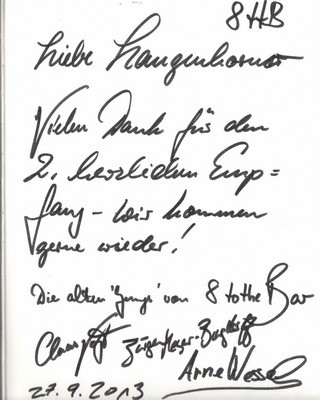 8 HB
Liebe Langenhorner
Vielen Dank für den
2. herzlichen Emp=
fang - wir kommen
gerne wieder!
Die alten "Jungs" von 8 to the Bar
Claus Jürgen
Arne Wessel
27.9.2013